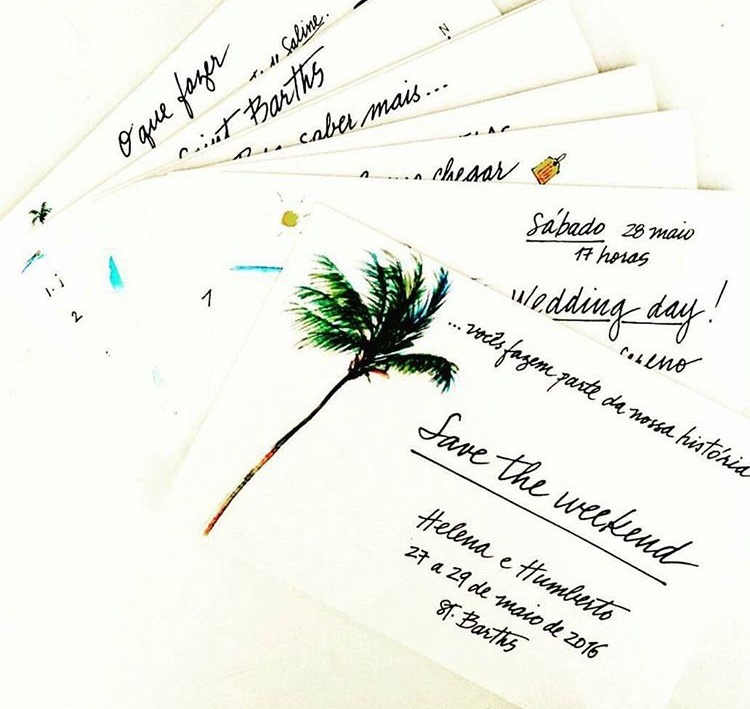 O que fazer
Saline.
N
Saint Barths
saber mais...
chegar
Sábado 28 maio
17 horas
Wedding day!
sereno
1
2
... vocês fazem parte da nossa história
Save the weekend
Helena e Humberto
27 a 29 de maio de 2016
St. Barths